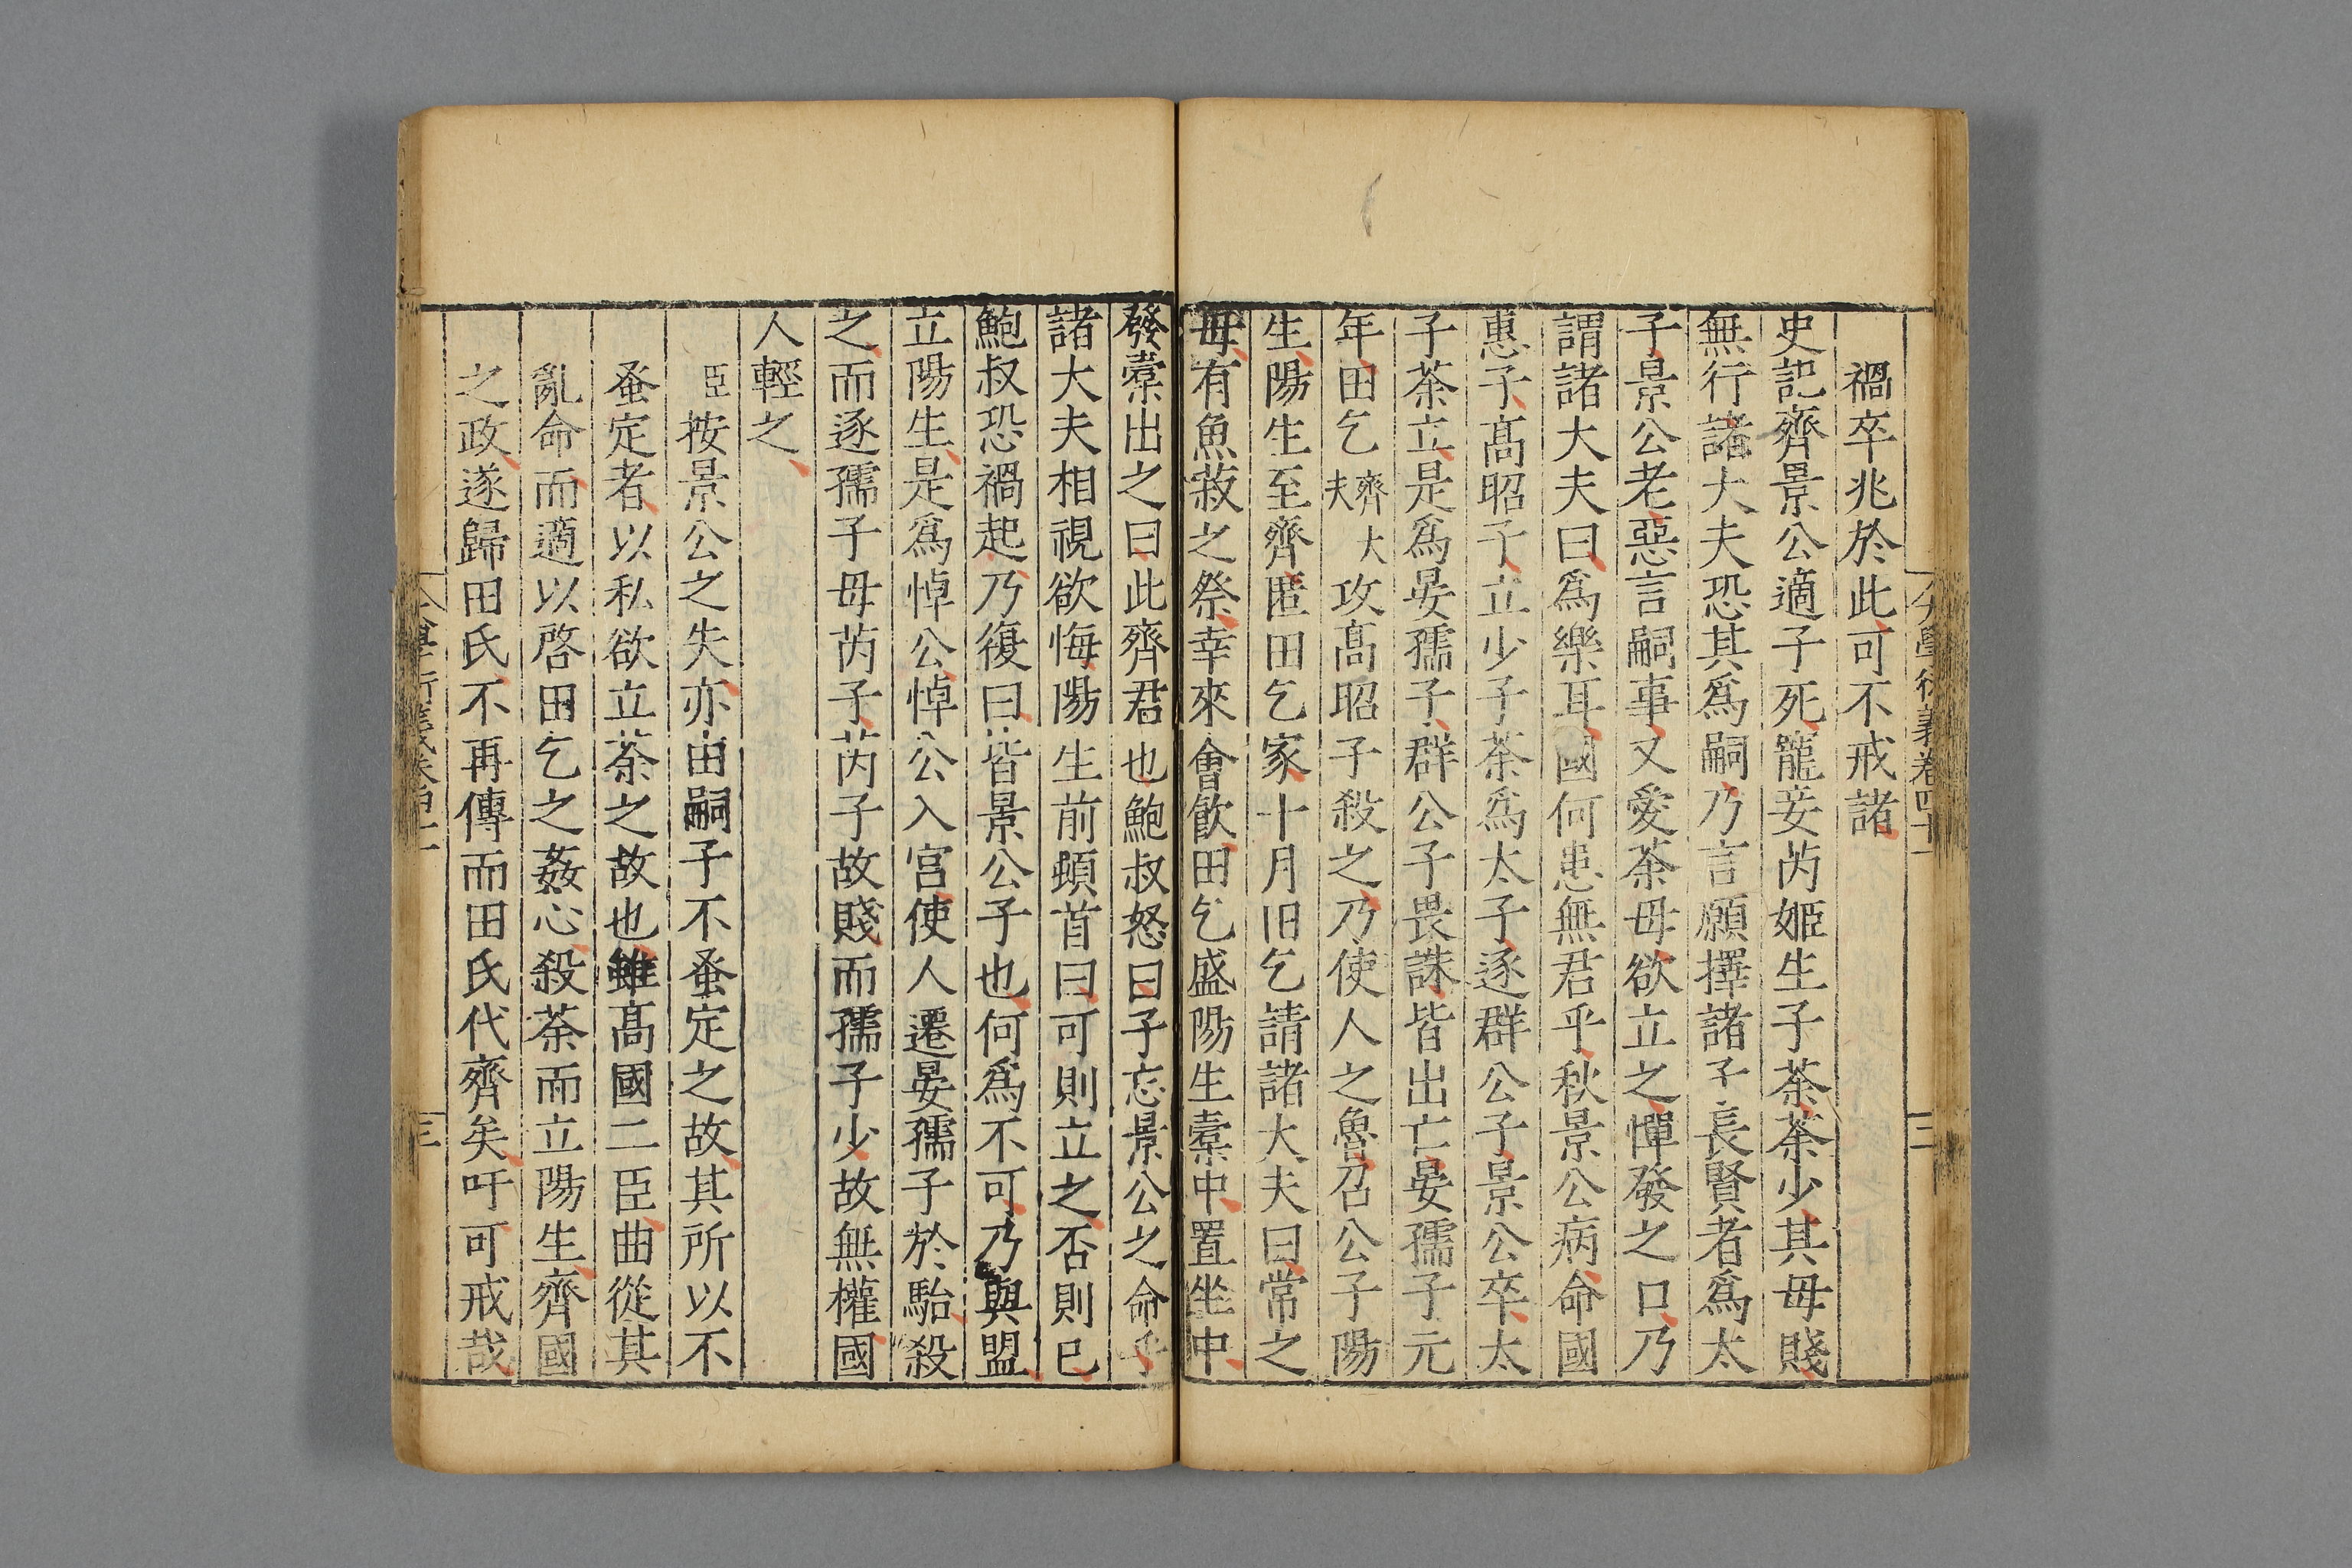 大學衍義卷四十一
三
禍卒兆於此可不戒諸
史記齊景公適子死寵妾芮姬生子荼荼少其母賤
無行諸大夫恐其爲嗣乃言願擇諸子長賢者爲太
子景公老惡言嗣事又愛荼母欲立之憚發之口乃
謂諸大夫曰爲樂耳國何患無君乎秋景公病命國
惠子髙昭子立少子荼爲太子逐群公子景公卒太
子荼立是爲晏孺子群公子畏誅皆出亡晏孺子元
年田乞齊大夫攻髙昭子殺之乃使人之魯召公子陽
生陽生至齊匿田乞家十月田乞請諸大夫曰常之
母有魚菽之祭幸來會飲田乞盛陽生橐中置坐中
發橐出之曰此齊君也鮑叔怒曰子忘景公之命乎
諸大夫相視欲悔陽生前頓首曰可則立之否則已
鮑叔恐禍起乃復曰皆景公子也何爲不可乃與盟
立陽生是爲悼公悼公入宮使人遷晏孺子於駘殺
之而逐孺子母芮子芮子故賤而孺子少故無權國
人輕之
臣按景公之失亦由嗣子不蚤定之故其所以不
蚤定者以私欲立荼之故也雖髙國二臣曲從其
亂命而適以啓田乞之姦心殺荼而立陽生齊國
之政遂歸田氏不再傳而田氏代齊矣吁可戒哉